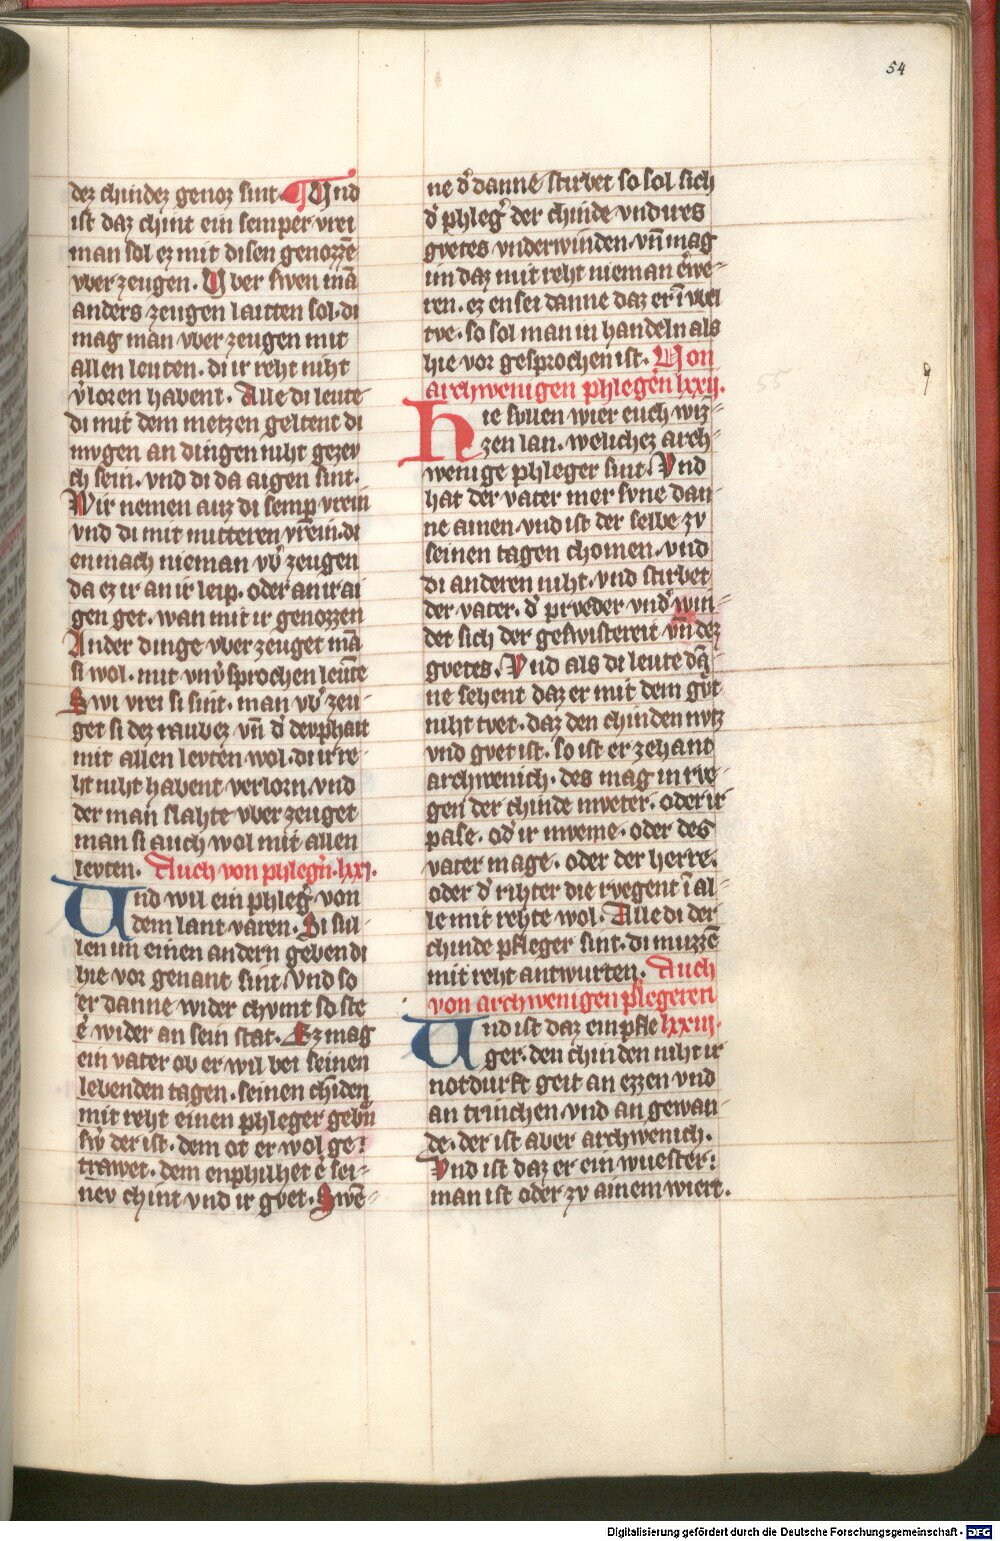 54
dez chindez genoz sint. ¶ Vnd
ist daz chint ein semper vrei
man sol ez mit disen genozzē
vber zeugen. Vber swen mā
anders zeugen laitten sol. di
mag man vber zeugen mit
allen leuten. di ir reht niht
v̓loren habent. Alle di leute
di mit dem metzen geltent di
mvgen an dingen niht gezev
ch sein. vnd di da aigen sint.
Wir nemen auz di semp̲ vrein
vnd di mit mitteren vrein. di
en mach nieman vb̓ zeugen
da ez ir an ir leip. oder an ir ai
gen get. wan mit ir genozzen
Ander dinge vber zeuget mā
si wol. mit vnv̓sprochen leūte
Swi vrei si sint. man vb̓ zeu
get si dez raubez vn̄ d̓ devphait
mit allen levten wol. di ir re
ht niht habent verlorn. vnd
der man slahte vber zeuget
man si auch wol mit allen
levten. Auch von phlegn̓. lxxi.
Vnd wil ein phleg̓ von
dem lant varen. Si sül
len im einen andern geben di
hie vor genant sint. Vnd so
er danne wider chvmt so ste
e̓ wider an sein stat. Ez mag
ein vater ob er wil bei seinen
lebenden tagen. seinen chīden
mit reht einen phleger gebn̄
sw̓ der ist. dem ot er wol ge
trawet. dem enphilhet e̓ sei
nev chint vnd ir gvet. Swē
ne d̓ danne stirbet so sol sich
d̓ phleg̓ der chinde vnd ires
gvetes vnderwinden. vn̄ mag
im daz mit reht nieman e̓we
ren. ez en sei danne daz er ī vbel
tve. so sol man in handeln als
hie vor gesprochen ist. Von
archwenigen phlegen̓ lxxij.
Hie svllen wier euch wiz
zen lan. welichez arch
wenige phleger sint. Vnd
hat der vater mer svne dan
ne ainen. vnd ist der selbe zv
seinen tagen chomen. vnd
di anderen niht. vnd stirbet
der vater. d̓ prveder vnd̓win
det sich der geswistereit vn̄ dez
gvetes. Vnd als di leute dā
ne sehent daz er mit dem gv̊t
niht tvet. daz den chinden nvtz
vnd gvet ist. so ist er zehant
archwenich. des mag in rve
gen der chinde mveter. oder ir
pase. od̓ ir mveme. oder des
vater mage. oder der herre.
oder d̓ rihter die rvegent ī al
le mit rehte wol. Alle di der
chinde pfleger sint. di mvzzē
mit reht antwurten. Auch
von archwenigen pflegeren
Vnd ist daz ein pfle lxxiij.
ger. den chinden niht ir
notdurft geit an ezzen vnd
an trinchen. vnd an gewan
de. der ist aber archwenich.
Vnd ist daz er ein wuester
man ist oder zv ainem wiert.
55
Digitalisierung gefördert durch die Deutsche Forschungsgemeinschaft - DFG